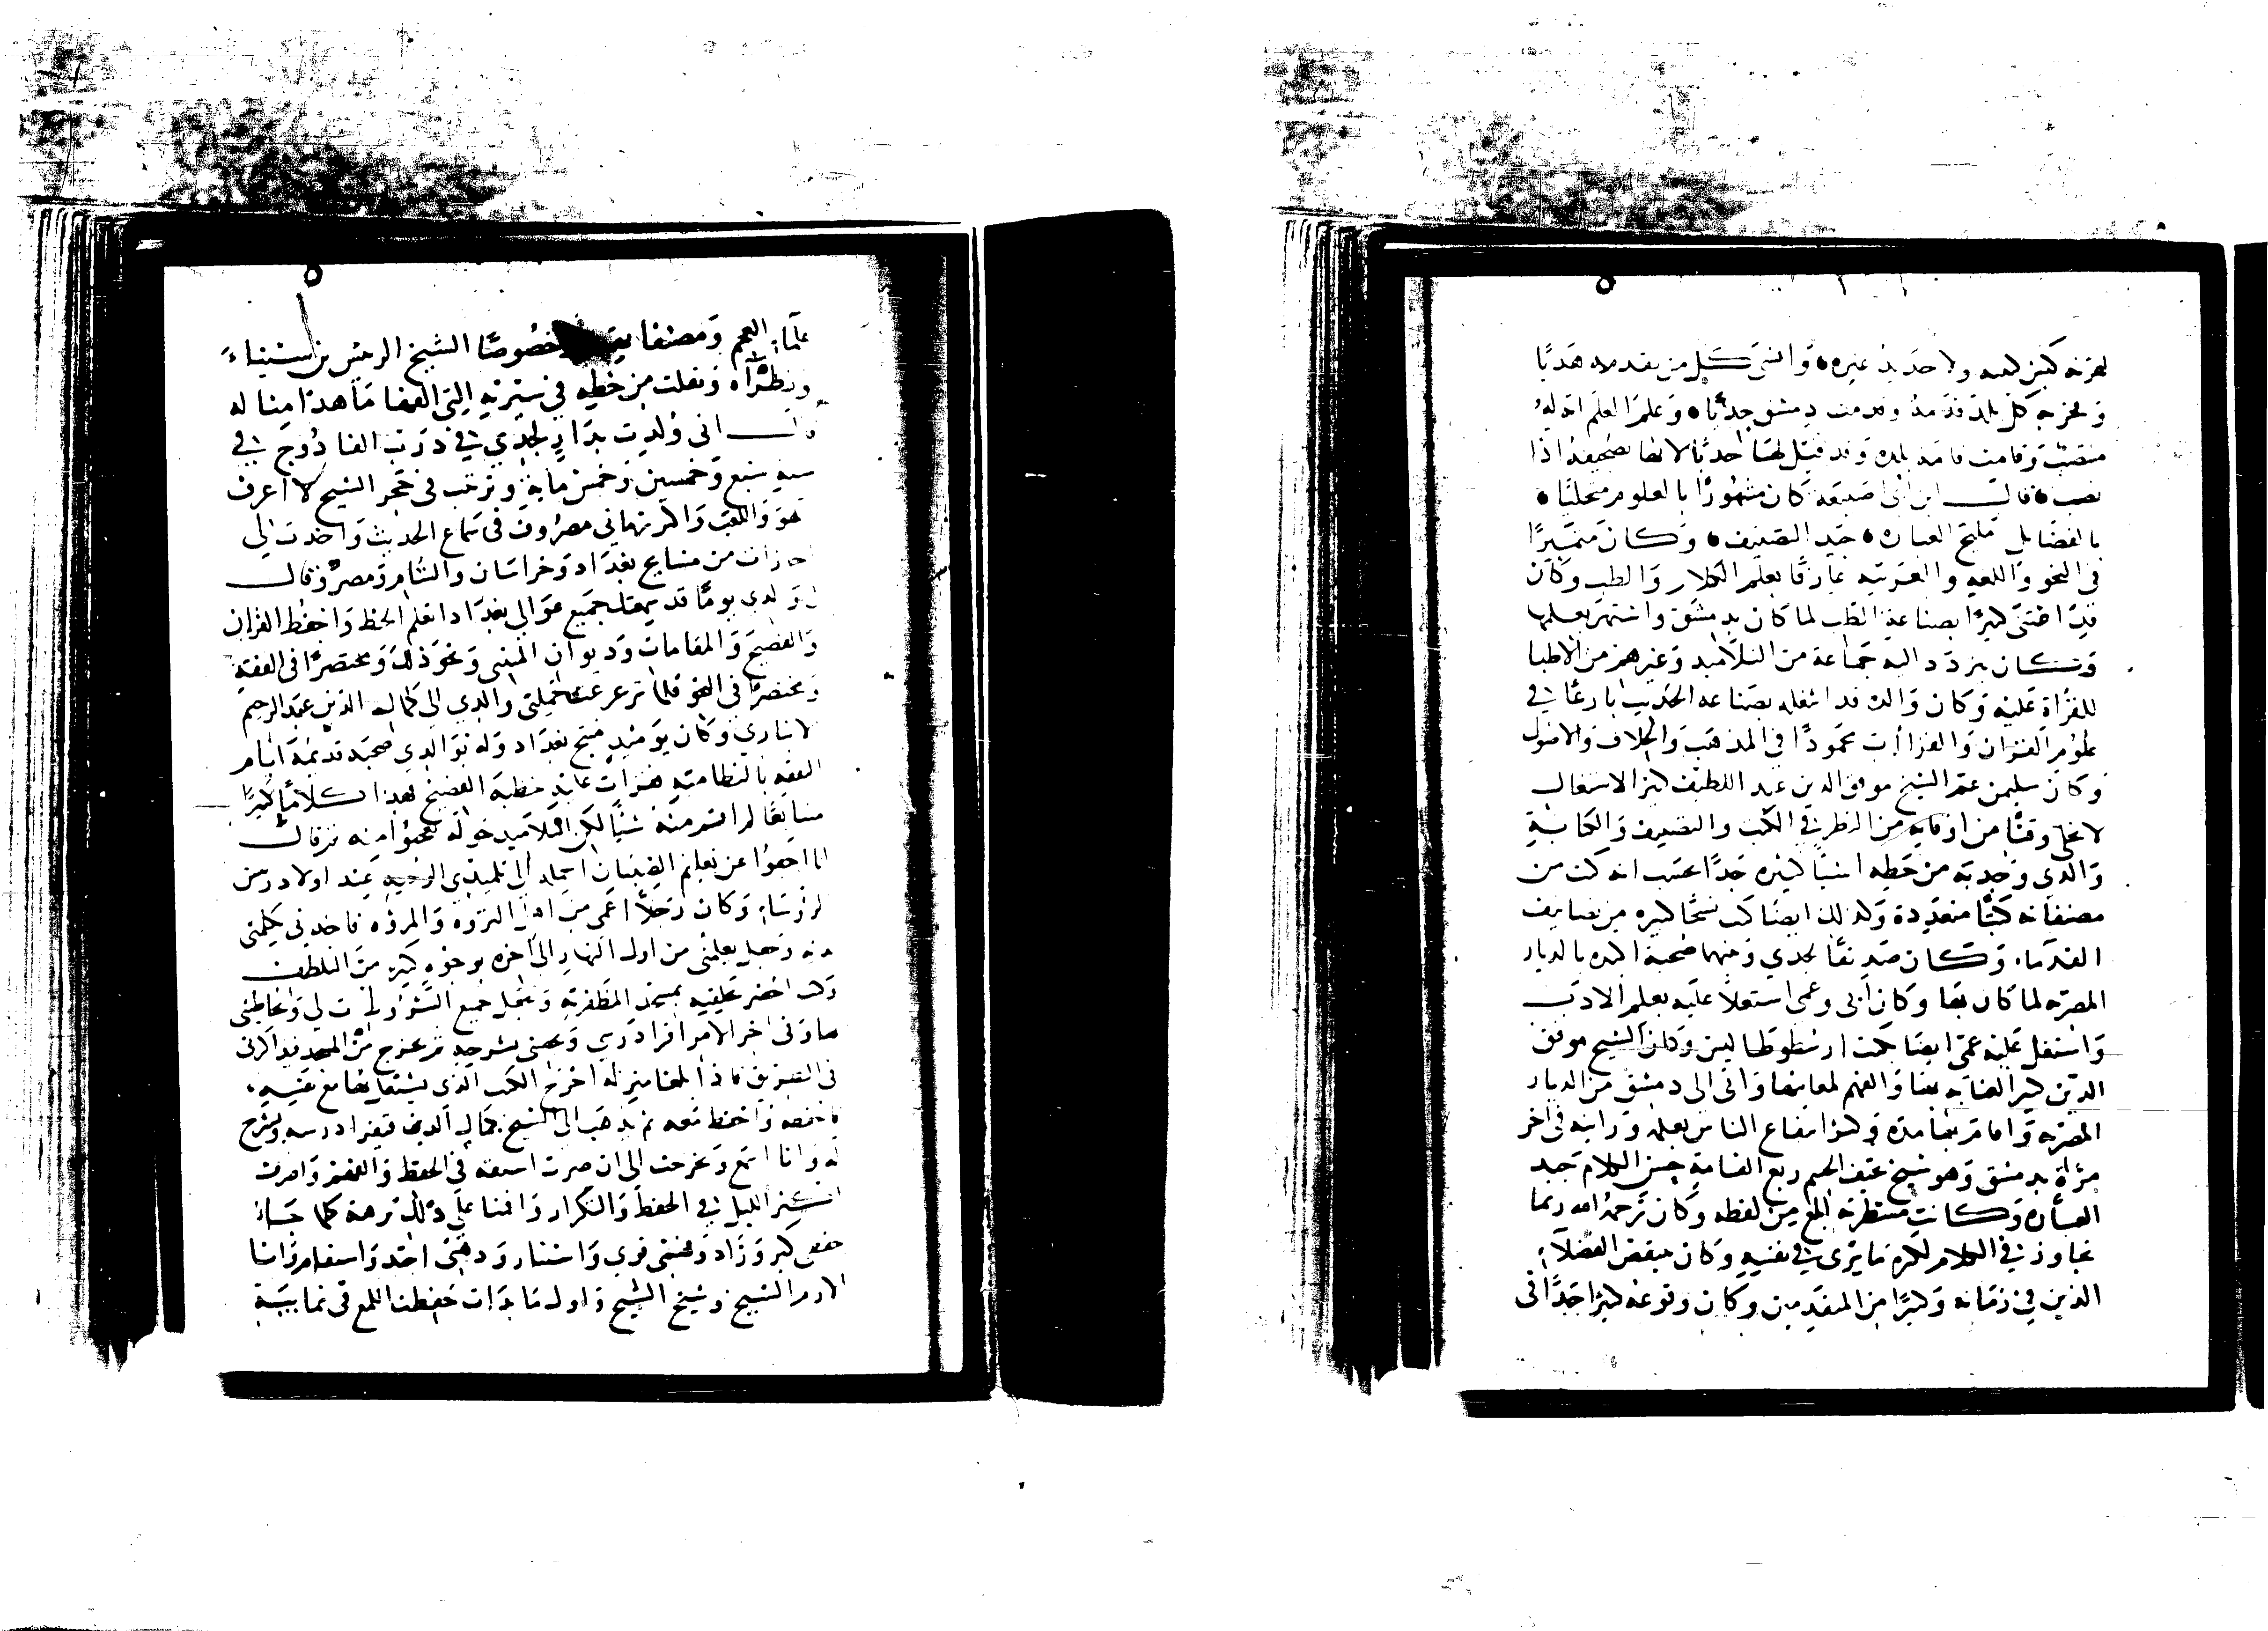 وكل بلد قدمه وقدمت دمشق وعلم العلم انه له
قال ابن ابي اصيبعة كان مشهورًا بالعلوم متحليًا
بالفضايل مليح العبارة جيد التصنيف وكان متميزًا
في النحو واللغة والعربية عارفًا بعلم الكلام والطب وكان
قد اعتنى كثيرًا بصناعة الطب لما كان بدمشق واشتهر بعلمها
وكان يتردد اليه جماعة من التلاميذ وغيرهم من الاطبا
للقراة عليه وكان والده قد اشغله بصناعة الحديث بارعًا في
علوم القران والقراات مجودًا في المذهب والخلاف والاصول
وكان سليمن عم الشيخ موفق الدين عبد اللطيف كثير الاشتغال
لا يخلي وقتًا من اوقاته من النظر في الكتب والتصنيف والكتابة
والذي وجدته من خطه اشيا كثيرة جدًا بحيث انه كتب من
مصنفاته كتبًا متعددة وكذلك ايضًا كتب نسخًا كثيرة من تصانيف
القدماء وكان صديقًا لجدي وبينهما صحبة اكيدة بالديار
المصرية لما كان بها وكان ابي وعمي اشتغلا عليه بعلم الادب
واشتغل عليه عمي ايضا بكتب ارسطوطاليس وكان الشيخ موفق
الدين كثير العناية بها والفهم لمعانيها واتى الى دمشق من الديار
المصرية واقام بها مدة وكثر انتفاع الناس بعلمه ورايته في اخر
مرة بدمشق وهو شيخ نحيف الجسم ربع القامة حسن الكلام جيد
العبارة وكانت مسطرته ابلغ من لفظه وكان رحمه الله ربما
تجاوز في الكلام لكثرة ما يرى في نفسه وكان يتنقص الفضلاء
الذين في زمانه وكثيرًا من المتقدمين وكان وقوعه كثيرًا جدًا في
علماء العجم ومصنفاتهم خصوصًا الشيخ الرييس بن سيناء
ونظراه ونقلت من خطه في سيرته التي الفها ما هذا مثاله
قال اني ولدت بدار لجدي في درب الفالوذج في
سنة سبع وخمسين وخمس ماية وتربيت في حجر الشيخ لا اعرف
اللعب واللهو واكثر زماني مصروف في سماع الحديث واخذت لي
اجازات من مشايخ بغداد وخراسان والشام ومصر وقال
لي والدي يومًا قد سمعتك جميع عوالي بغداد اتعلم الخط واحفظ القران
والفصيح والمقامات وديوان المتنبي ونحو ذلك ومختصرًا في الفقه
ومختصرًا في النحو فلما ترعرعت حملني والدي الى كمال الدين عبد الرحيم
الانباري وكان يوميذ شيخ بغداد وله بوالدي صحبة قديمة ايام
التفقه بالنظامية فقرات عليه خطبة الفصيح فهذ كلامًا كثيرًا
متتابعًا لم افهم منه شيئًا لكن التلاميذ حوله يعجبون منه ثم قال
انا اجفوا عن تعليم الصبيان احمله الى تلميذي الوجيه
وكان رجلًا اعمى من اهل الثروة والمروة فاخذني بكلتي
يديه وجعل يعلمني من اول النهار الى اخره بوجوه كثيرة من التلطف
وكنت احضر حلقته بمسجد الظفرية ويجعل جميع الشروح لي ويخاطبني
بها وفي اخر الامر اقرا درسي ويخصني بشرحه ثم نخرج من المسجد فيذاكرني
في الطريق فاذا بلغنا منزله اخرج الكتب التي يشتغل بها مع نفسه
فاحفظ له واحفظ معه ثم يذهب الى الشيخ كمال الدين فيقرا درسه ويشرح
له وانا اسمع وتخرجت الى ان صرت اسبقه في الحفظ والفهم واصرف
اكثر الليل في الحفظ والتكرار واقمنا على ذلك برهة كلما جاء
حفظي كثر وزاد وفهمي قوي واستنار وذهني احتد واستقام وانا
الازم الشيخ وشيخ الشيخ واول ما بدات حفظت اللمع في ثمانية